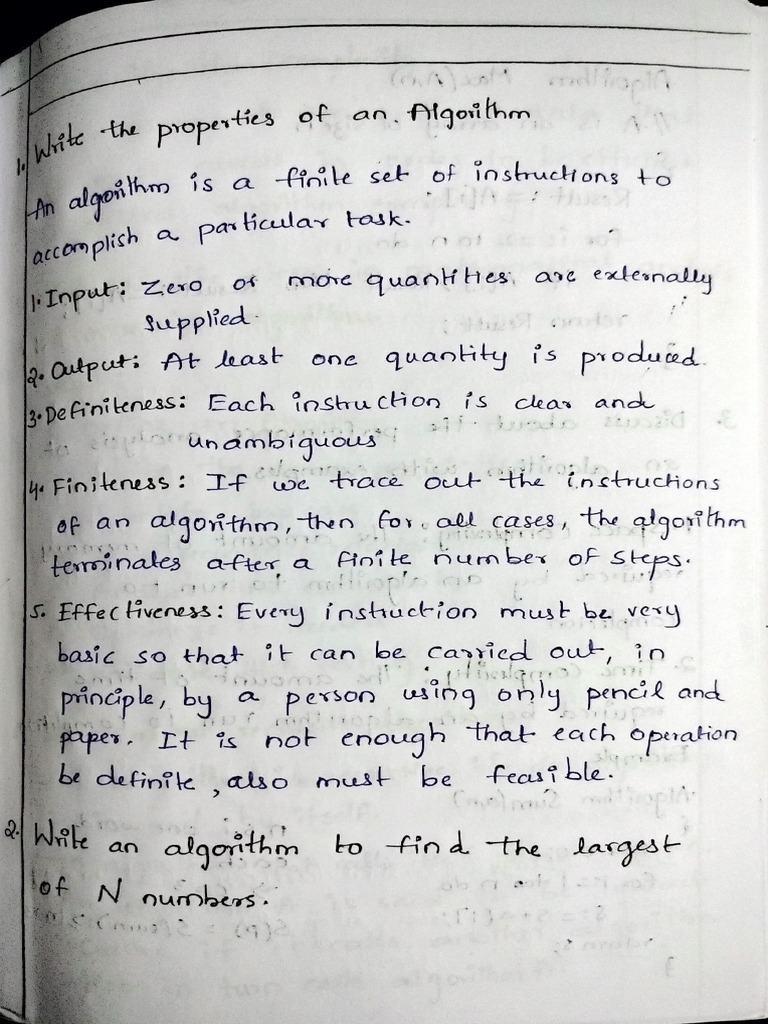 1. Write the properties of an Algorithm
An algorithm is a finite set of instructions to
accomplish a particular task.
1. Input: Zero or more quantities are externally
supplied.
2. Output: At least one quantity is produced.
3. Definiteness: Each instruction is clear and
unambiguous
4. Finiteness: If we trace out the instructions
of an algorithm, then for all cases, the algorithm
terminates after a finite number of steps.
5. Effectiveness: Every instruction must be very
basic so that it can be carried out, in
principle, by a person using only pencil and
paper. It is not enough that each operation
be definite, also must be feasible.
2. Write an algorithm to find the largest
of N numbers.